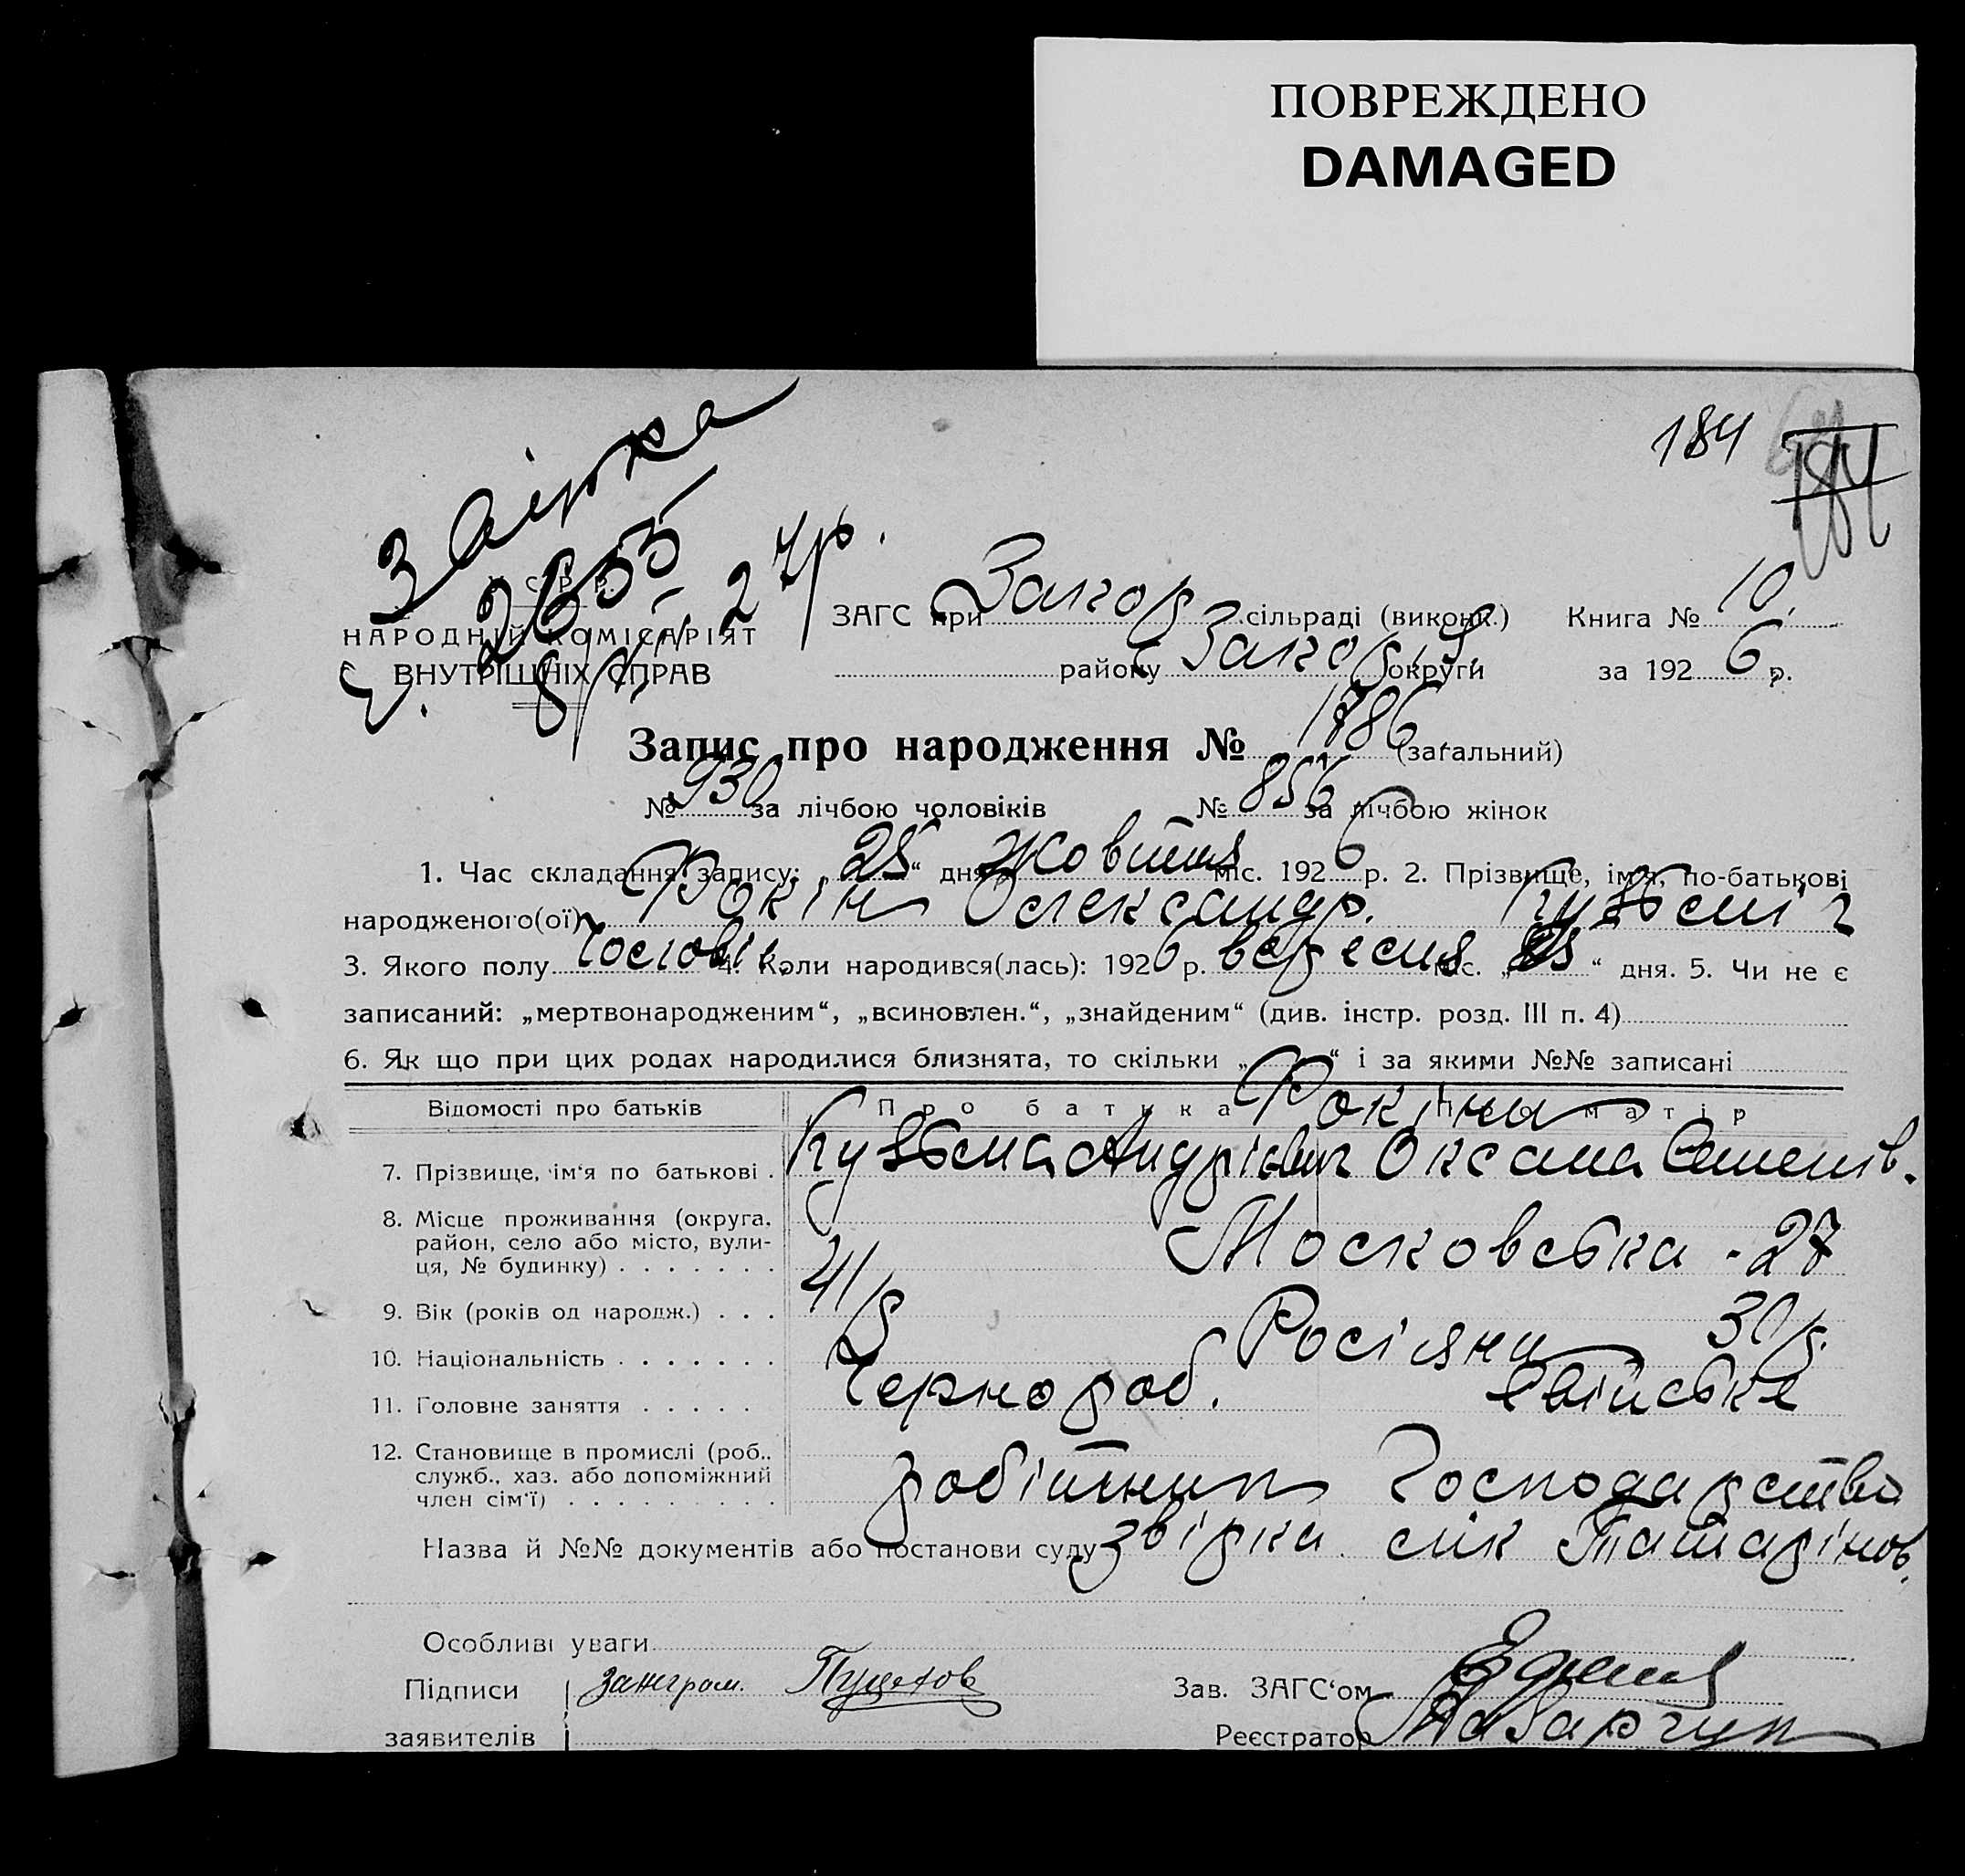 ПОВРЕЖДЕНО
DAMAGED
184
184
2655
У С Р Р
НАРОДНІЙ КОМІСАРІЯТ
ВНУТРІШНІХ СПРАВ
ЗАГС при сільраді (виконк.) Книга № 10.
району округи за 192 6 р.
Запис про народження № 1786 (загальний)
№ 930 за лічбою чоловіків № 856 за лічбою жінок
1. Час складання запису: „ 25 “ дня Жовтня міс. 192 6 р. 2. Прізвище, ім‘я, по-батькові
народженого(ої) Фокін Олександр. Кузьміч
3. Якого полу Чоловіч. 4. Коли народився(лась): 192 6 р. вересня міс. „ “ дня. 5. Чи не є
записаний: „мертвонародженим“, „всиновлен.“, „знайденим“ (див. інстр. розд. III п. 4)
6. Як що при цих родах народилися близнята, то скільки „ “ і за якими №№ записані
Відомості про батьків Про батька Про матір
Фокіни
7. Прізвище, ім‘я по батькові . Кузьма Андрієвич Оксана Семенів.
8. Місце проживання (округа,
район, село або місто, вули-
ця, № будинку) . . . . . . . Московська - 27
9. Вік (років од народж.) . . . 41/р 30/р.
10. Національність . . . . . . . Росіяни
11. Головне заняття . . . . . Чернороб. хвійське
12. Становище в промислі (роб.,
служб., хаз. або допоміжний
член сім‘ї) . . . . . . . . . робітник господарство
Назва й №№ документів або постанови суду звірка
Особливі уваги
Підписи
Зав. ЗАГС‘ом
заявителів
Реєстратор